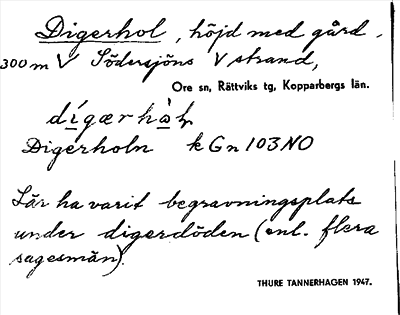 Digerhol, höjd med gård,
300 m V Södersjöns V strand,
Ore sn, Rättviks tg, Kopparbergs län.
dígærhàɫ
Digerholn k Gn 103 NO
Lär ha varit begravningsplats
under digerdöden (enl. flera
sagesmän).
THURE TANNERHAGEN 1947.